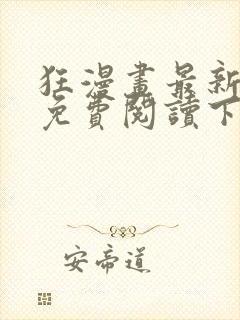 狂漫畫最新
免費閱讀下
安帝道